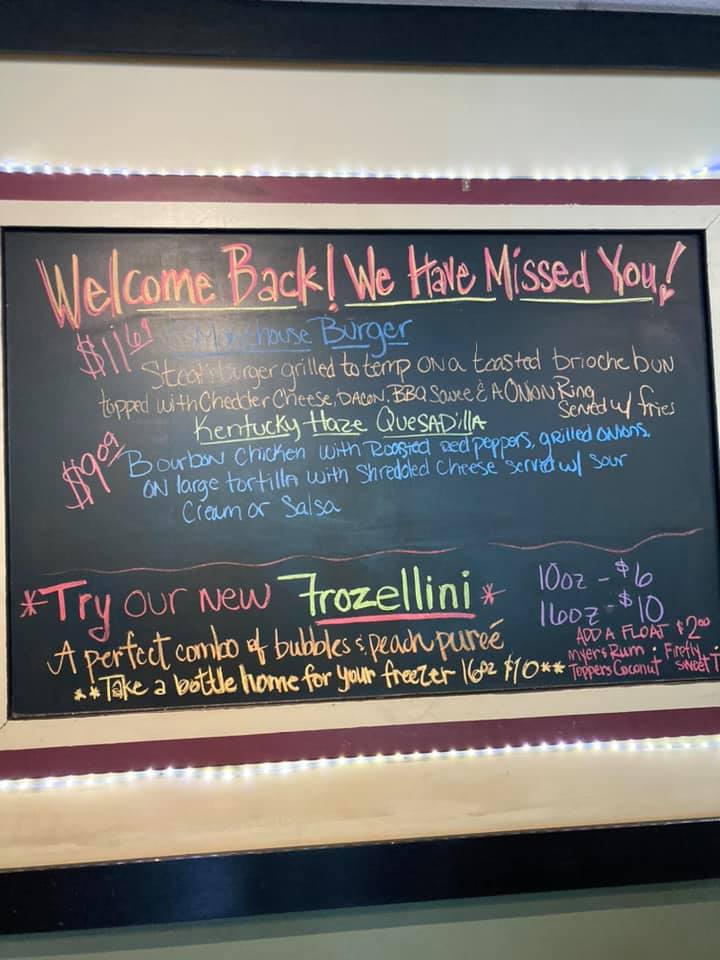 Welcome Back! We Have Missed You!
$11.69 Smokehouse Burger
Steak Burger grilled to temp on a toasted brioche bun
topped with Chedder Cheese, Bacon, BBQ Sauce & A Onion Ring
Served w/ fries
Kentucky Haze Quesadilla
$9.09 Bourbon Chicken with Roasted Red peppers, grilled onions,
on large tortilla with Shredded Cheese served w/ sour
Cream or Salsa
*Try our new Frozellini*
A perfect combo of bubbles & peach pureé
**Take a bottle home for your freezer 16oz $10**
10oz - $6
16oz - $10
ADD A FLOAT $2.00
Myer's Rum • Firefly
Toppers Coconut Sweet T